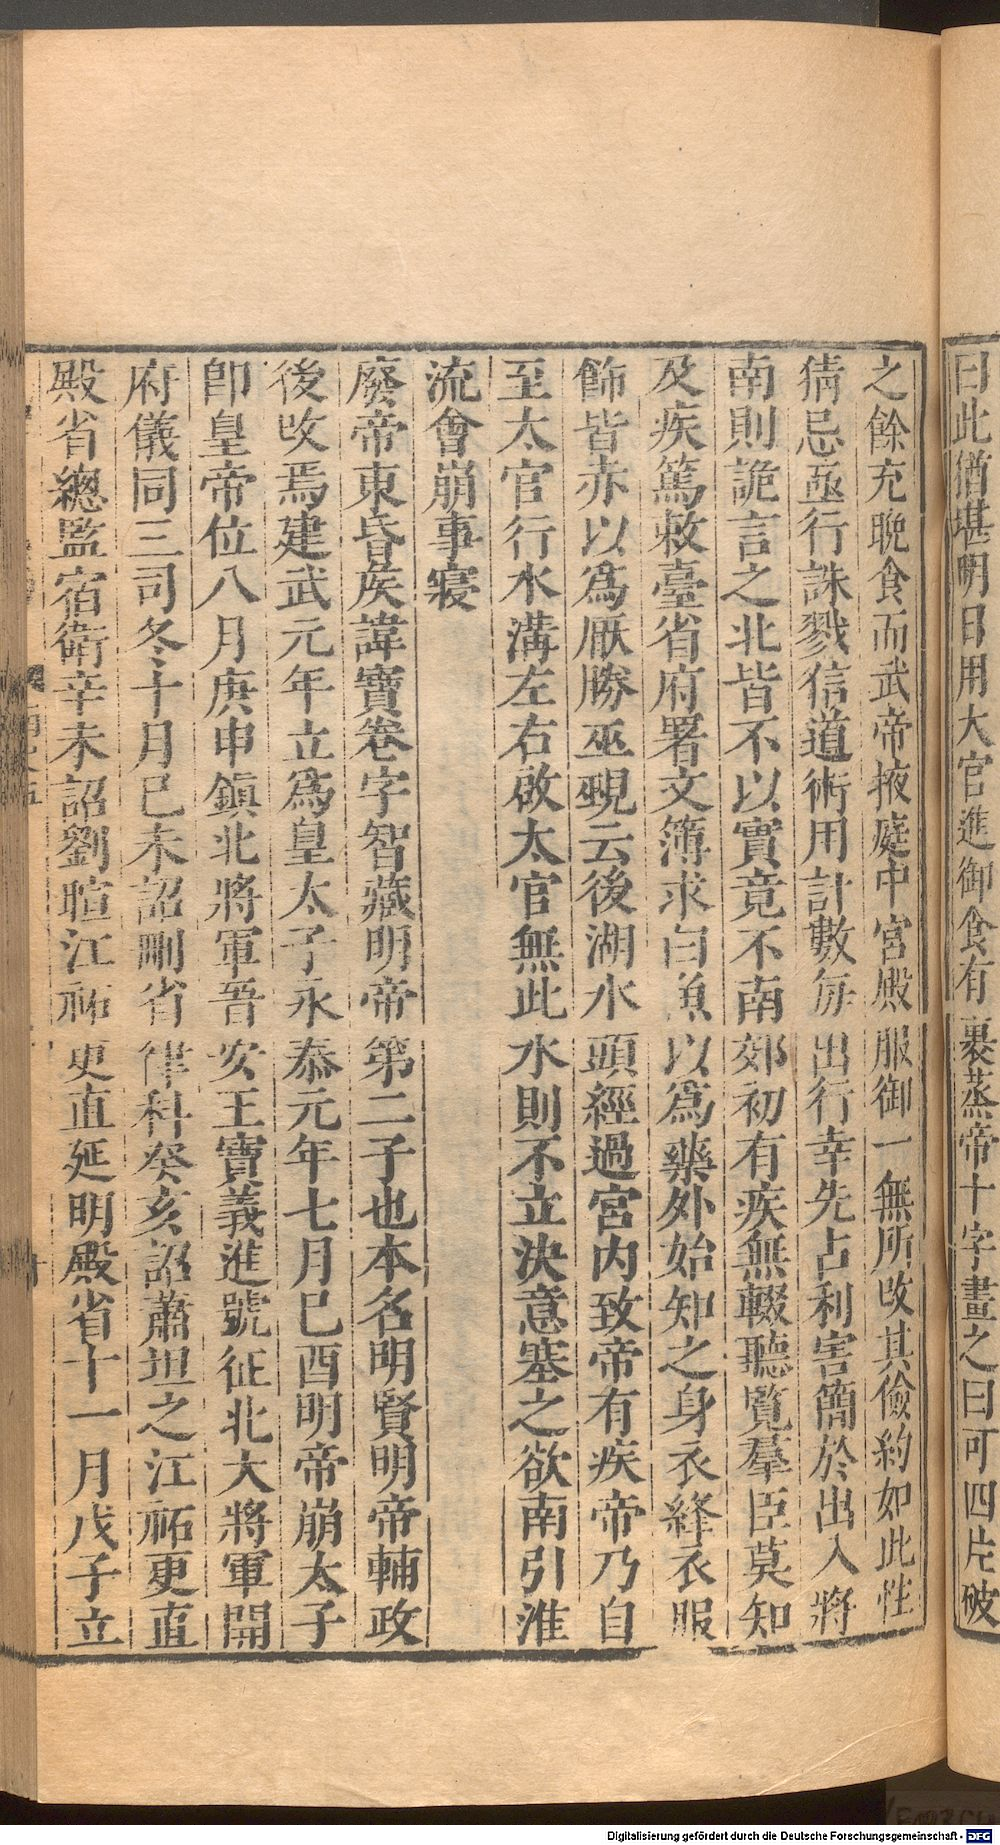 曰此猶堪明日用大官進御食有裹蒸帝十字畫之曰可四片破
之餘充晚食而武帝掖庭中宮殿服御一無所改其儉約如此性
猜忌亟行誅戮信道術用計數每出行幸先占利害簡於出入將
南則詭言之北皆不以實竟不南郊初有疾無輟聽覽羣臣莫知
及疾篤敕臺省府署文簿求白魚以爲藥外始知之身衣絳衣服
飾皆赤以爲厭勝巫覡云後湖水頭經過宮內致帝有疾帝乃自
至太官行水溝左右啟太官無此水則不立決意塞之欲南引淮
流會崩事寢
廢帝東昏侯諱寶卷字智藏明帝第二子也本名明賢明帝輔政
後改焉建武元年立爲皇太子永泰元年七月己酉明帝崩太子
卽皇帝位八月庚申鎮北將軍晉安王寶義進號征北大將軍開
府儀同三司冬十月己未詔刪省律科癸亥詔蕭坦之江祏更直
殿省總監宿衛辛未詔劉暄江祏更直延明殿省十一月戊子立
Digitalisierung gefördert durch die Deutsche Forschungsgemeinschaft - DFG